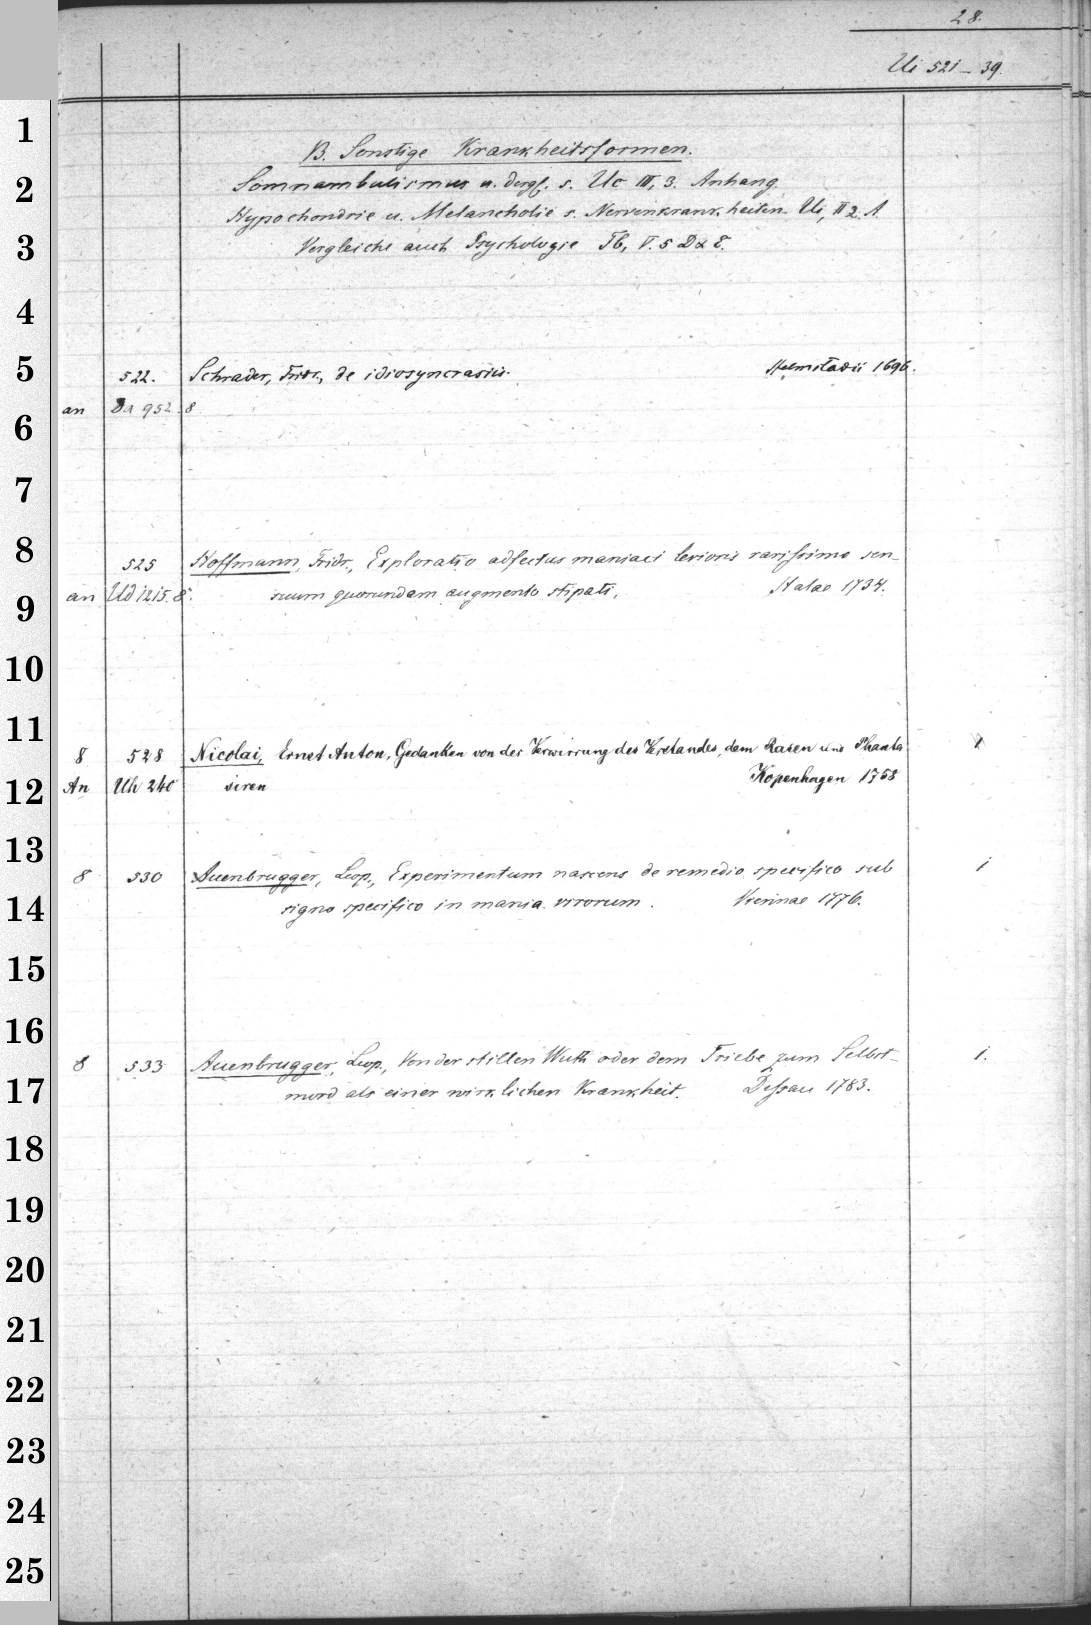 28.
Ui 521-39.
B. Sonstige Krankheitsformen.
Somnambulismus u. dergl. s. Uc III, 3. Anhang.
Hypochondrie u. Melancholie s. Nervenkrankheiten Ui, II 2. A.
Vergleiche auch Psychologie Tb, V. 5 D & E.
522. Schrader, Fridr., de idiosyncrasiis. Helmstadii 1696.
an 952 8
525 Hoffmann, Fridr., Exploratio adfectus maniaci levioris rarissimo sen-
an Ud 1215. 8°. suum quorundam augmento stipati. Halae 1734.
8 528 Nicolai, Ernst Anton, Gedanken von der Verwirrung des Verstandes, dem Rasen und Phanta 1
An Uh 240 siren Kopenhagen 1758
8 530 Auenbrugger, Leop., Experimentum nascens de remedio specifico sub 1
signo specifico in mania virorum. Viennae 1776.
8 533 Auenbrugger, Leop., Von der stillen Wuth oder dem Triebe zum Selbst- 1.
mord als einer wirklichen Krankheit. Dessau 1783.
1
2
3
4
5
6
7
8
9
10
11
12
13
14
15
16
17
18
19
20
21
22
23
24
25